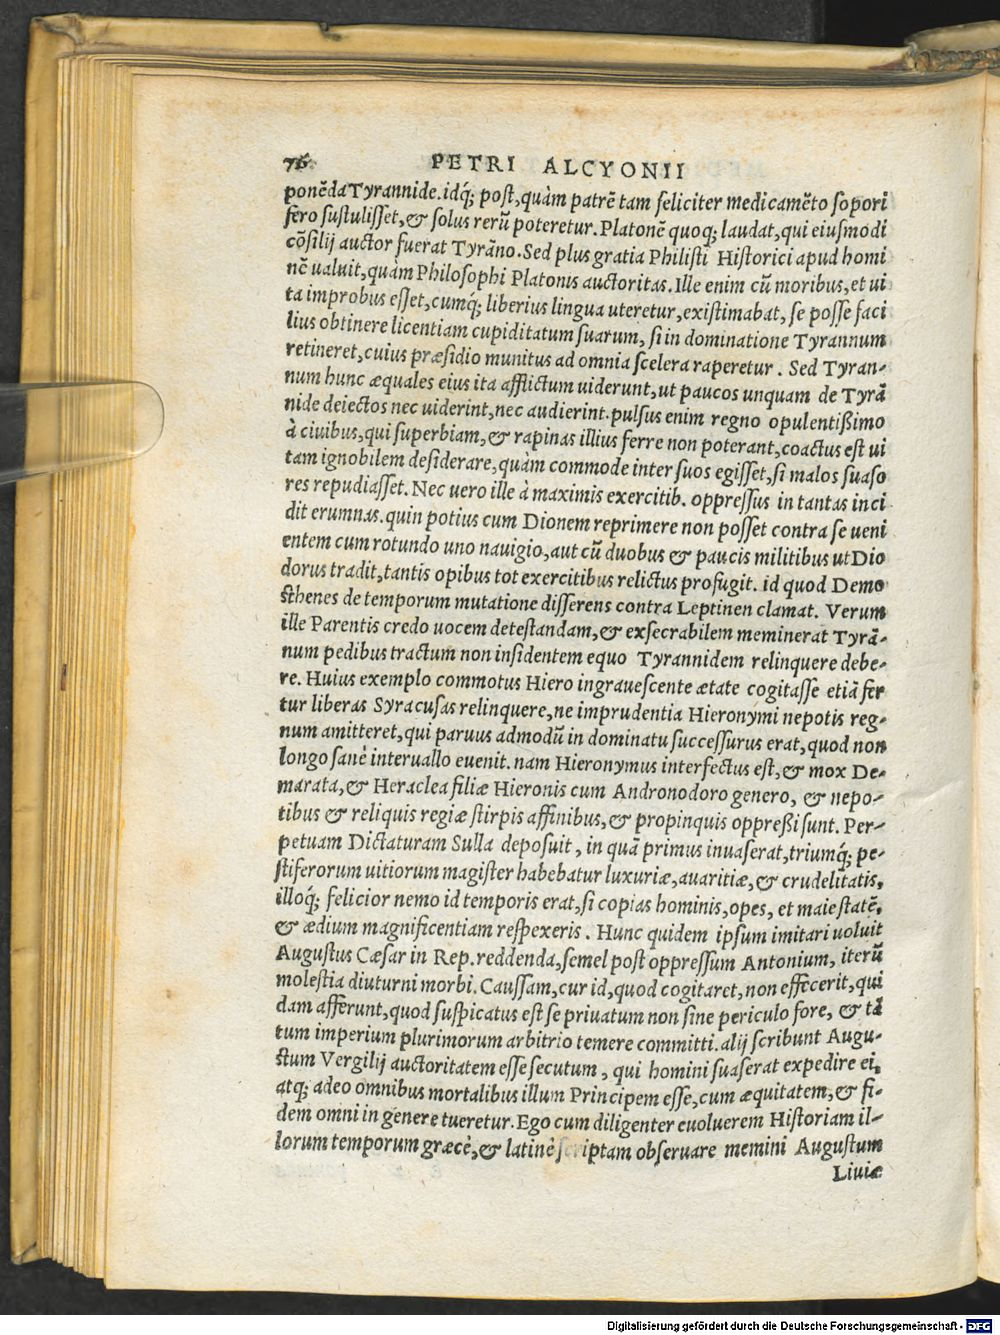 76 PETRI ALCYONII
ponẽda Tyrannide. idq́; post, quàm patrẽ tam feliciter medicamẽto sopori
fero sustulisset, & solus rerũ poteretur. Platonẽ quoq; laudat, qui eiusmodi
cõsilij auctor fuerat Tyrãno. Sed plus gratia Philisti Historici apud homi
nẽ ualuit, quam Philosophi Platonis auctoritas. Ille enim cũ moribus, et ui
ta improbus esset, cumq́; liberius lingua uteretur, existimabat, se posse faci
lius obtinere licentiam cupiditatum suarum, si in dominatione Tyrannum
retineret, cuius præsidio munitus ad omnia scelera raperetur. Sed Tyran-
num hunc æquales eius ita afflictum uiderunt, ut paucos unquam de Tyrã
nide deiectos nec uiderint, nec audierint. pulsus enim regno opulentißimo
à ciuibus, qui superbiam, & rapinas illius ferre non poterant, coactus est ui
tam ignobilem desiderare, quàm commode inter suos egisset, si malos suaso
res repudiasset. Nec uero ille à maximis exercitib. oppressus in tantas inci
dit erumnas. quin potius cum Dionem reprimere non posset contra se ueni
entem cum rotundo uno nauigio, aut cũ duobus & paucis militibus ut Dio
dorus tradit, tantis opibus tot exercitibus relictus profugit. id quod Demo
sthenes de temporum mutatione disserens contra Leptinen clamat. Verum
ille Parentis credo uocem detestandam, & exsecrabilem meminerat Tyrã-
num pedibus tractum non insidentem equo Tyrannidem relinquere debe-
re. Huius exemplo commotus Hiero ingrauescente ætate cogitasse etiã fer
tur liberas Syracusas relinquere, ne imprudentia Hieronymi nepotis reg-
num amitteret, qui paruus admodũ in dominatu successurus erat, quod non
longo sanè interuallo euenit. nam Hieronymus interfectus est, & mox De-
marata, & Heraclea filiæ Hieronis cum Andronodoro genero, & nepo-
tibus & reliquis regiæ stirpis affinibus, & propinquis oppreßi sunt. Per-
petuam Dictaturam Sulla deposuit, in quã primus inuaserat, triumq́; pe-
stiferorum uitiorum magister habebatur luxuriæ, auaritiæ, & crudelitatis,
illoq́; felicior nemo id temporis erat, si copias hominis, opes, et maiestatẽ,
& ædium magnificentiam respexeris. Hunc quidem ipsum imitari uoluit
Augustus Cæsar in Rep. reddenda, semel post oppressum Antonium, iterũ
molestia diuturni morbi. Caussam, cur id, quod cogitaret, non effecerit, qui
dam afferunt, quod suspicatus est se priuatum non sine periculo fore, & tã
tum imperium plurimorum arbitrio temere committi. alij scribunt Augu-
stum Vergilij auctoritatem esse secutum, qui homini suaserat expedire ei,
atq; adeo omnibus mortalibus illum Principem esse, cum æquitatem, & fi-
dem omni in genere tueretur. Ego cum diligenter euoluerem Historiam il-
lorum temporum græcè, & latinè scriptam obseruare memini Augustum
Liuiæ
Digitalisierung gefördert durch die Deutsche Forschungsgemeinschaft - DFG